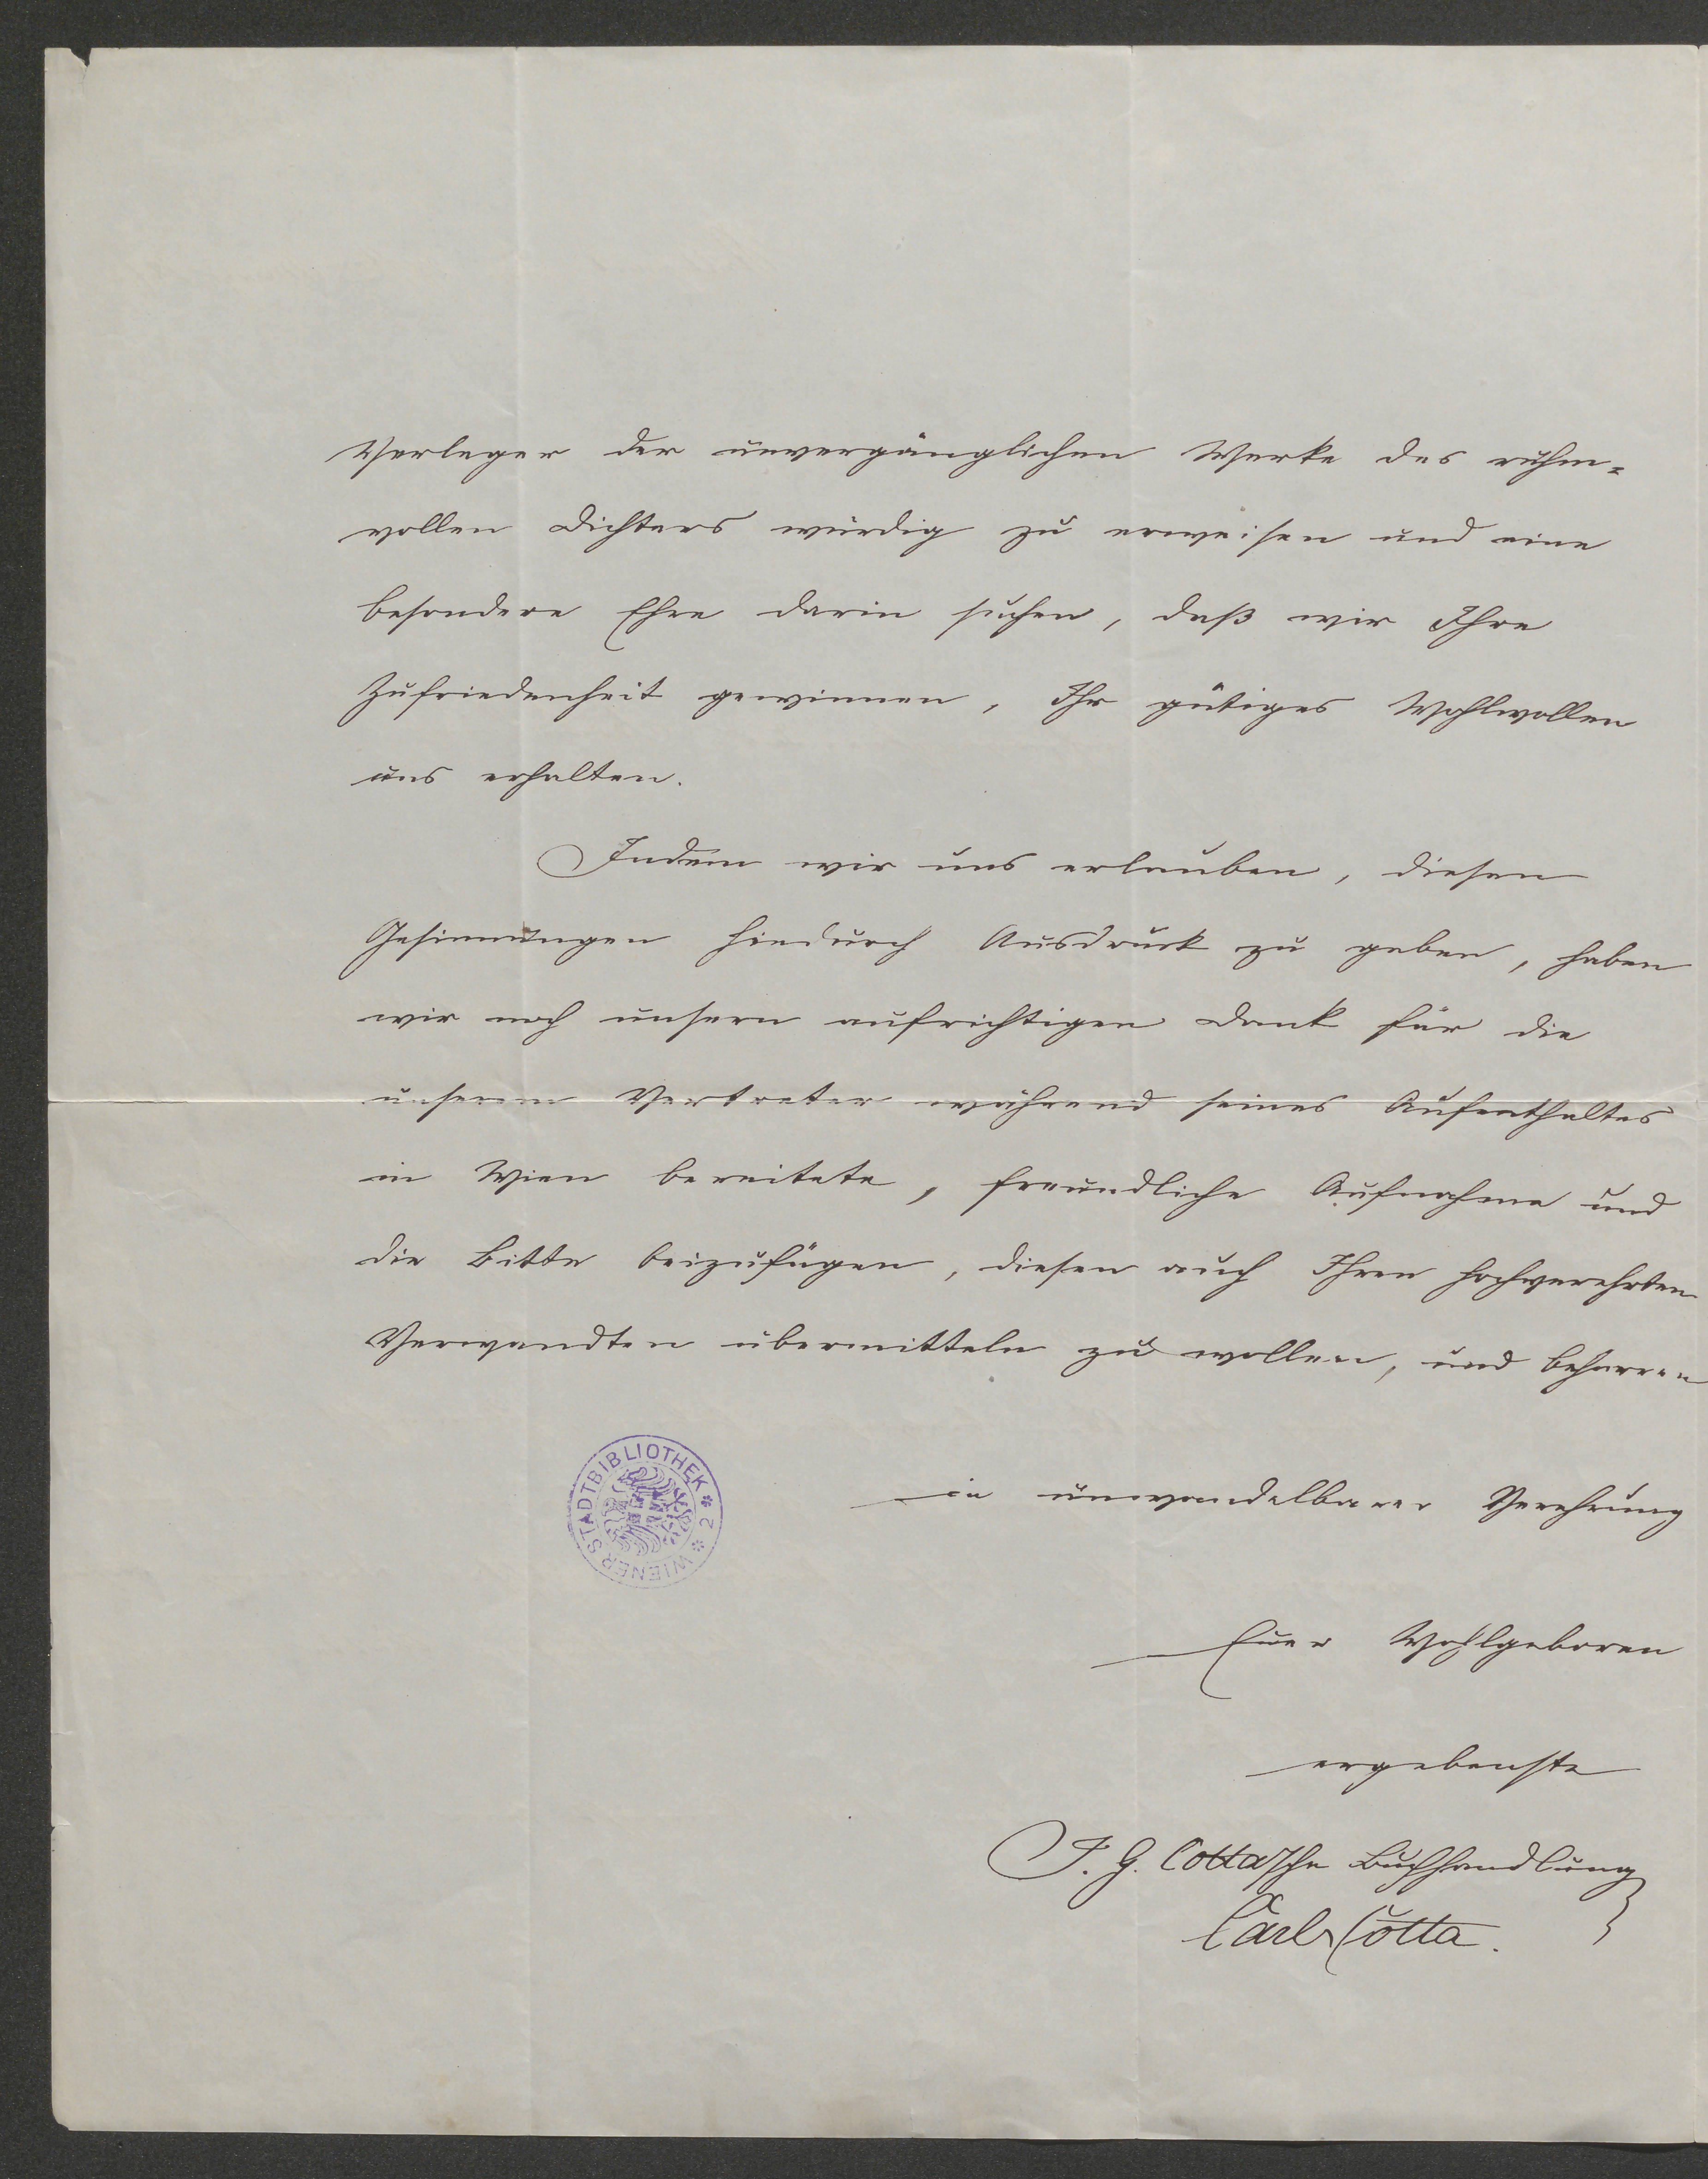 Verleger der unvergänglichen Werke des ruhm=
vollen Dichters würdig zu erweisen und eine
besondere Ehre darin suchen, daß wir Ihre
Zufriedenheit gewinnen, Ihr gütiges Wohlwollen
uns erhalten.
Indem wir uns erlauben, diesen
Gesinnungen hiedurch Ausdruck zu geben, haben
wir noch unsern aufrichtigen Dank für die
unserem Vertreter während seines Aufenthaltes
in Wien bereitete, freundliche Aufnahme und
die Bitte beizufügen, diesen auch Ihren hochverehrten
Verwandten übermitteln zu wollen, und beharren
in unwandelbarer Verehrung
Euer Wohlgeboren
ergebenste
J. G. Cotta'sche Buchhandlung
Carl Cotta.
WIENER STADTBIBLIOTHEK * 2 *